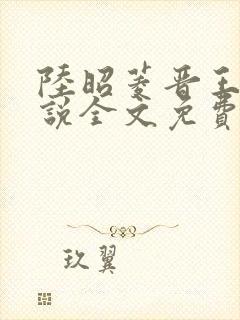 陸昭菱晋王
說全文免費
玖翼